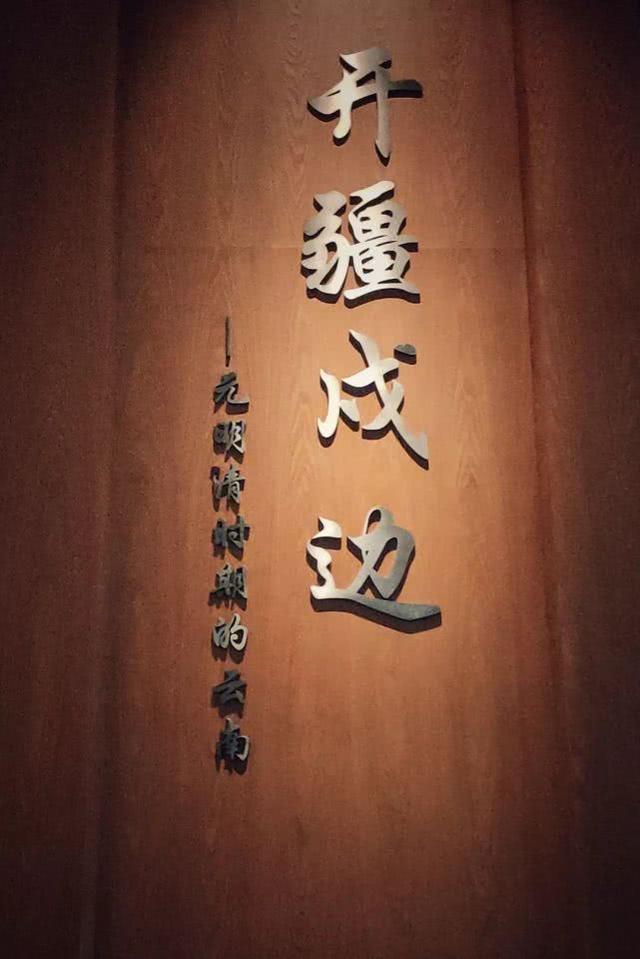 开疆戍边
—元明清时期的云南